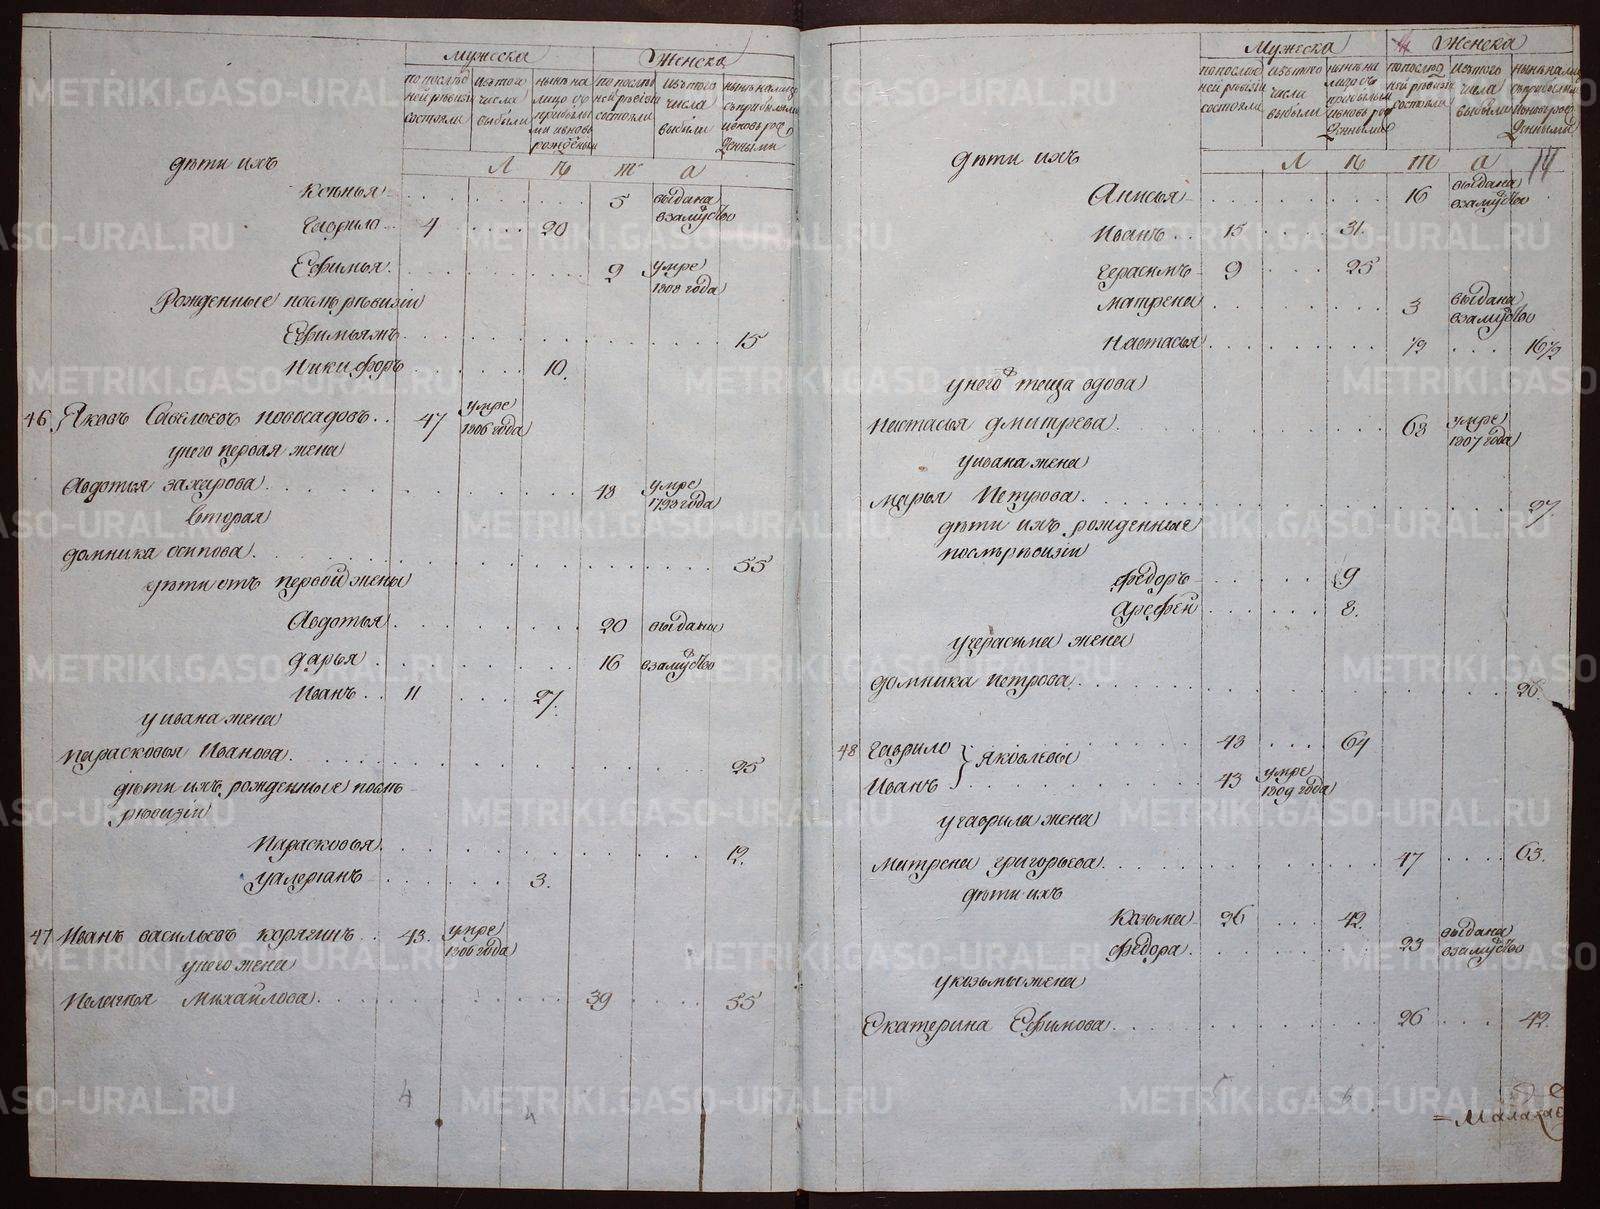 Мужеска Женска
по послѣдней ревизіи состояли
изъ того числа выбыли
нынѣ на лицо съ прибылыми и вновь рожденными
по послѣдней ревизіи состояли
изъ того числа выбыли
нынѣ на лицо съ прибылыми и вновь рожденными
дѣти ихъ Л ѣ т а
Ксенья 5 выдана взамужство
Гаврило 4 20
Ефимья 9 умре 1808 года
Рожденные послѣ ревизіи
Ефимья жъ 15
Никифоръ 10.
46. Яковъ Савельевъ Новосадовъ 47 умре 1806 года
у него первая жена
Авдотья Захарова 48 умре 1798 года
вторая
Домника Осипова 55
дѣти отъ первой жены
Авдотья 20 выданы
Дарья 16 взамужство
Иванъ 11 27.
у Ивана жена
Парасковья Иванова 25
дѣти ихъ рожденные послѣ
ревизіи
Парасковья 12.
Уалеріанъ 3.
47 Иванъ Васильевъ Корягинъ 43. умре 1806 года
у него жена
Пелагѣя Михайлова 39 55
4 4
Мужеска Женска
по послѣдней ревизіи состояли
изъ того числа выбыли
нынѣ на лицо съ прибылыми и вновь рожденными
по послѣдней ревизіи состояли
изъ того числа выбыли
нынѣ на лицо съ прибылыми и вновь рожденными
дѣти ихъ Л ѣ т а 14
Анисья 16 выдана взамужство
Иванъ 15 31.
Герасимъ 9 25
Матрена 3 выдана взамужство
Настасья 1/2 16 1/2
у него теща вдова
Настасья Дмитрева 68 умре 1807 года
у Ивана жена
Марья Петрова 27
дѣти ихъ рожденные
послѣ ревизіи
Федоръ 9
Арефей 8.
у Герасима жена
Домника Петрова 26.
48 Гаврило } Яковлевы 48 64
Иванъ 43 умре 1809 года
у Гаврила жена
Матрена Григорьева 47 63.
дѣти ихъ
Казьма 26 42.
Федора 23 выдана взамужство
у Казьмы жена
Екатерина Ефимова 26 42.
METRIKI.GASO-URAL.RU